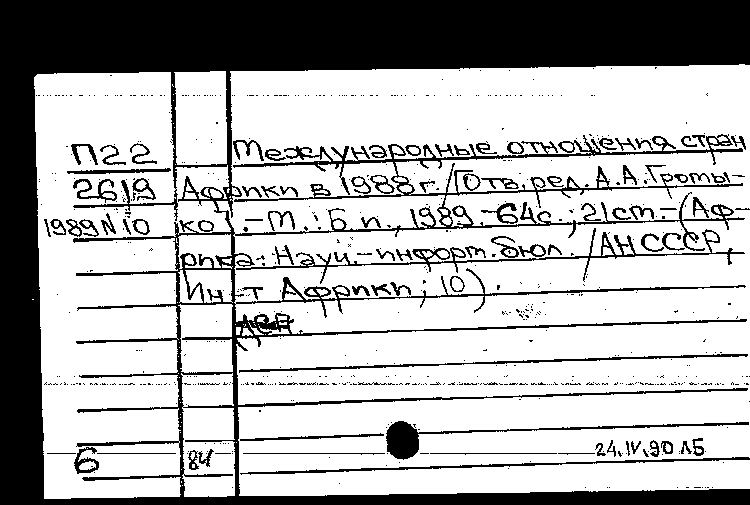 П22 Международные отношения стран
2619 Африки в 1988 г. / [Отв. ред. А.А. Громы-
1989 N 10 ко]. - М.: Б.и., 1989. - 64с.; 21см. - (Аф-
рика: Науч.-информ. бюл. / АН СССР,
Ин-т Африки; 10).
6 84 24.IV.90 ЛБ